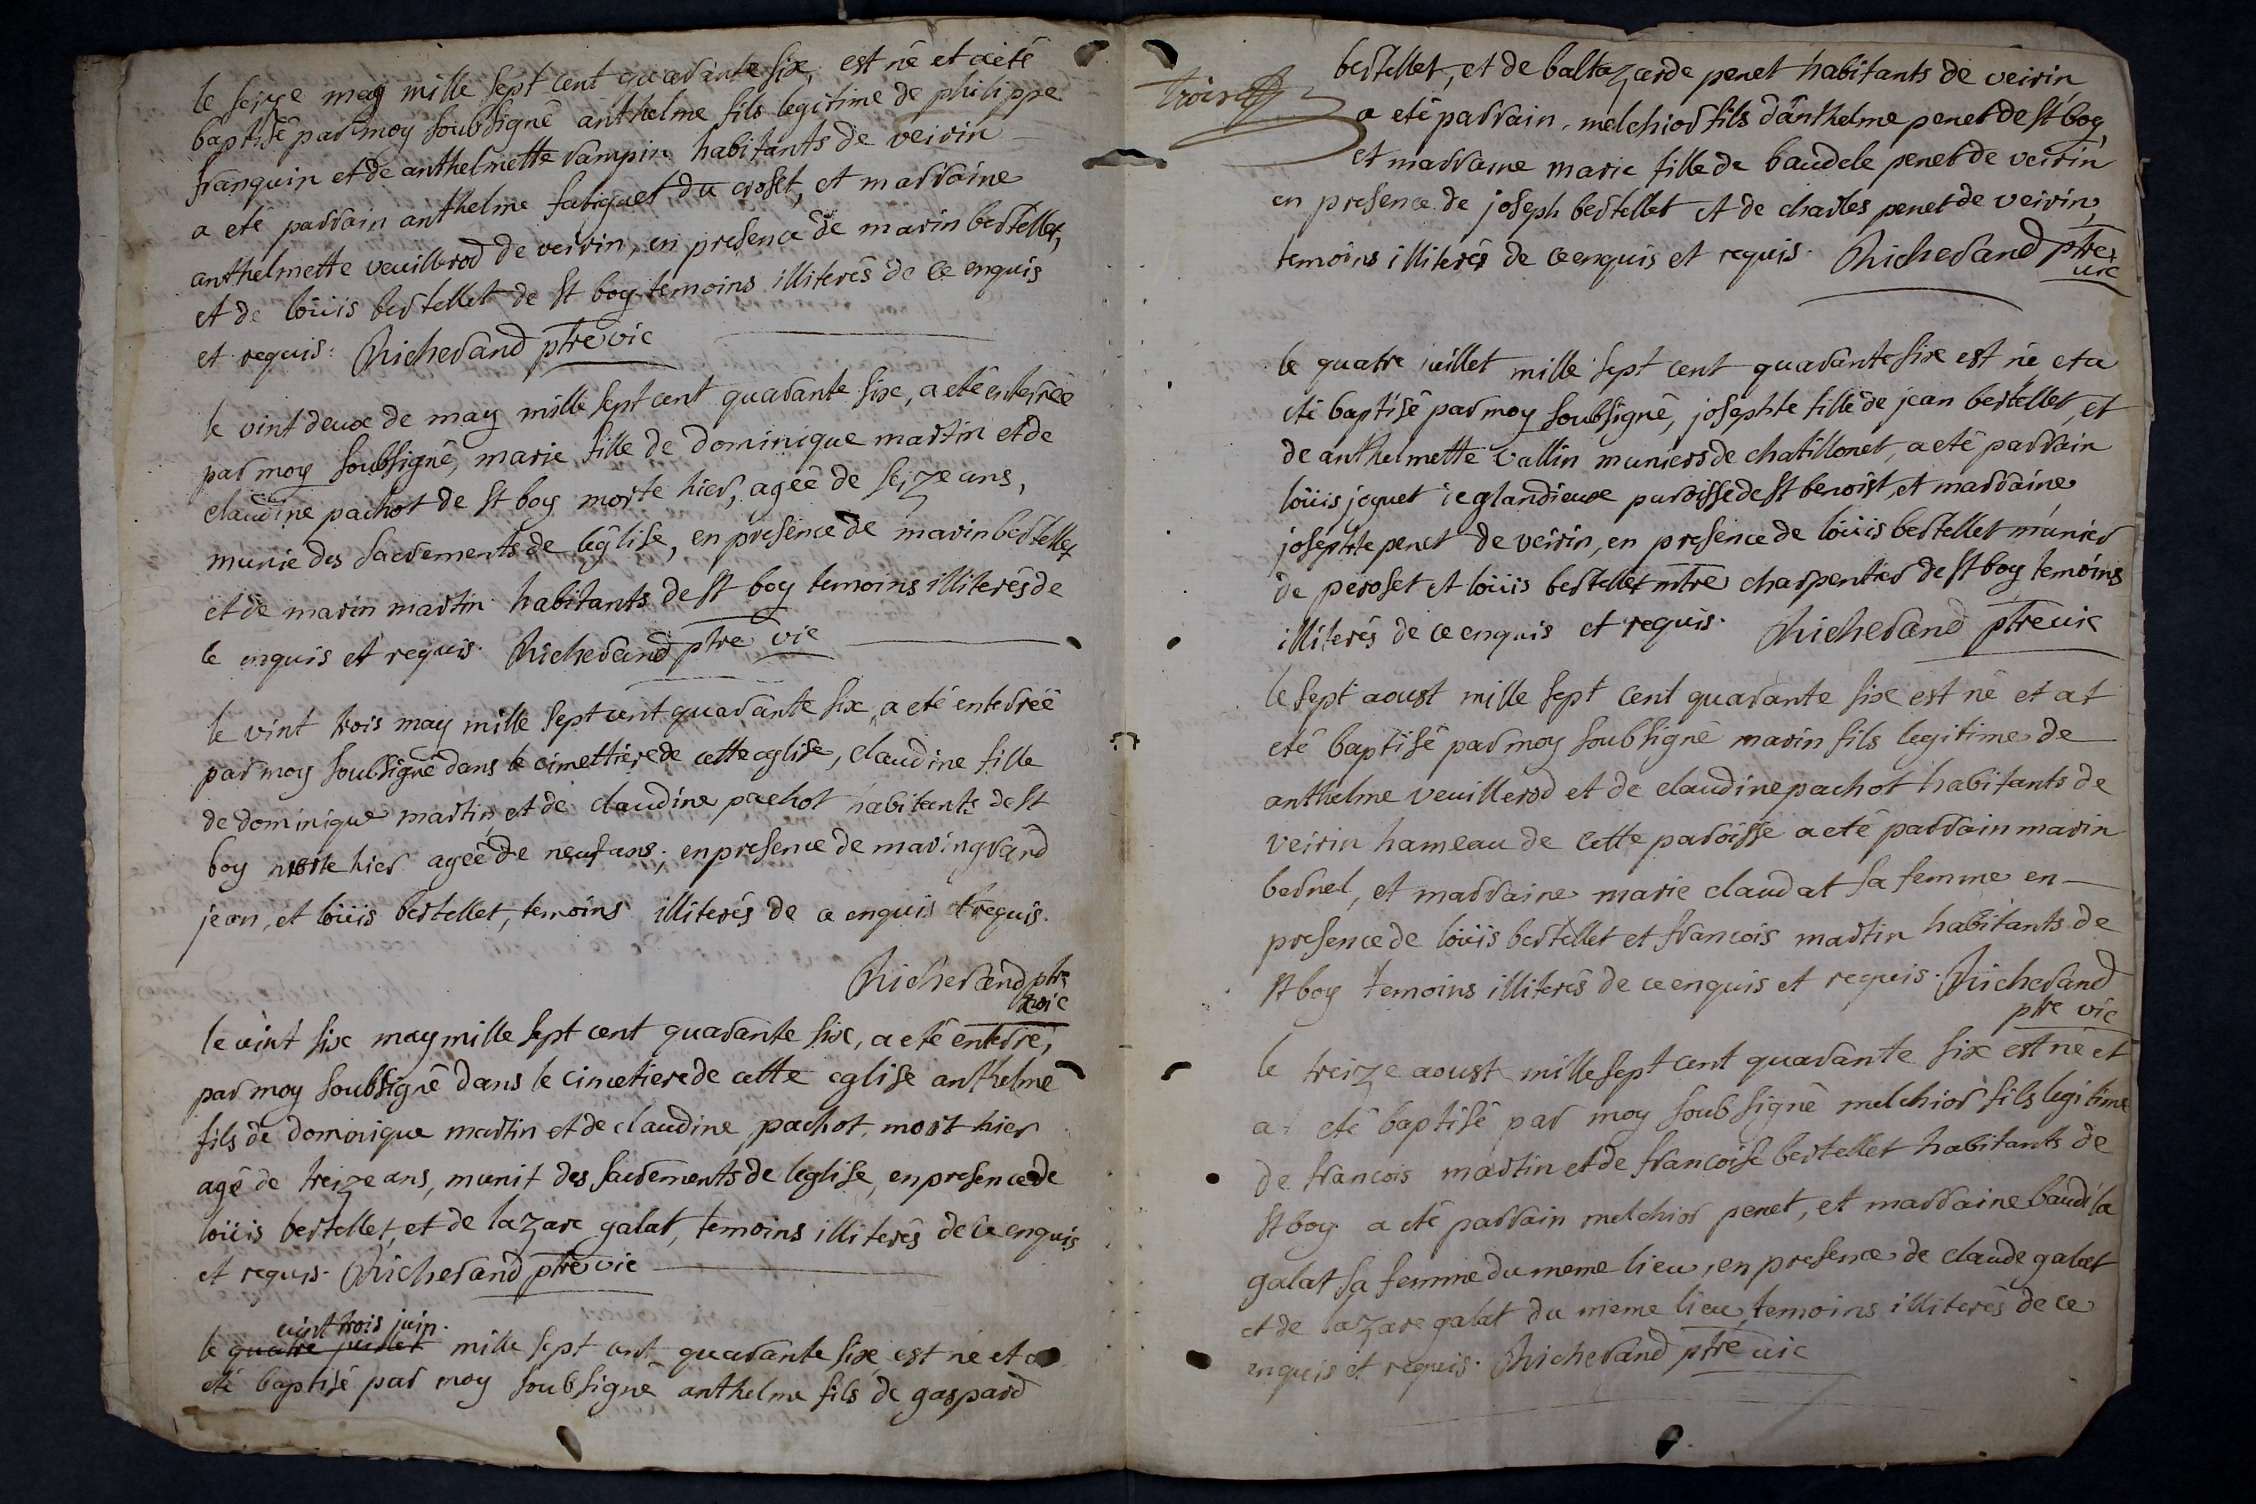 le seize may mille sept cent quarante six, est né et a eté
baptisé par moy soubsigné anthelme fils legitime de philippe
franquin et de anthelmette rampin habitants de veirin
a eté parrain anthelme fatiguet du croset, et marraine
anthelmette veuillerod de veirin, en presence de marin bertellet,
et de loüis bertellet de st boy temoins illiterés de ce enquis
et requis. Richerand ptre vic
le vint deux de may mille sept cent quarante six, a eté enterrée
par moy soubsigné, marie fille de dominique martin et de
claudine pachot de st boy morte hier, agée de seize ans,
munie des sacrements de léglise, en presence de marin bertellet
et de marin martin habitants de st boy temoins illiterés de
ce enquis et requis. Richerand ptre vic
le vint trois may mille sept cent quarante six, a eté enterrée
par moy soubsigné dans le cimettiere de cette eglise, claudine fille
de dominique martin et de claudine pachot habitants de st
boy morte hier agée de neuf ans, en presence de marin grand
jean, et loüis bertellet, temoins illiterés de ce enquis et requis.
Richerand ptre
vic
le vint six may mille sept cent quarante six, a eté enterré,
par moy soubsigné dans le cimetiere de cette eglise anthelme
fils de dominique martin et de claudine pachot, mort hier
agé de treize ans, munit des sacrements de leglise, en presence de
loüis bertellet, et de lazare galat, temoins illiterés de ce enquis
et requis. Richerand ptre vic
vint trois juin.
le quatre juillet mille sept cent quarante six est né et a
eté baptisé par moy soubsigné anthelme fils de gaspard
trois
bertellet, et de baltazarde penet habitants de veirin
a eté parrain, melchior fils d'anthelme penet de st boy,
et marraine marie fille de baudele penet de veirin
en presence de joseph bertellet et de charles penet de veirin,
temoins illiterés de ce enquis et requis. Richerand ptre
vic
le quatre juillet mille sept cent quarante six est né et a
eté baptisé par moy soubsigné, josephte fille de jean bertellet, et
de anthelmette vallin muniers de chatillonet, a eté parrain
loüis joquet de glandieux paroisse de st benoist, et marraine
josephte penet de veirin, en presence de loüis bertellet munier
de peroset et loüis bertellet mtre charpentier de st boy temoins
illiterés de ce enquis et requis. Richerand ptre vic
le sept aoust mille sept cent quarante six est né et at
eté baptisé par moy soubsigné marin fils legitime de
anthelme veuillerod et de claudine pachot habitants de
veirin hameau de cette paroisse a eté parrain marin
bernel, et marraine marie claudat sa femme en
presence de loüis bertellet et francois martin habitants de
st boy temoins illiterés de ce enquis et requis. Richerand
ptre vic
le treize aoust mille sept cent quarante six est né et
at eté baptisé par moy soubsigné melchior fils legitime
de francois martin et de francoise bertellet habitants de
st boy a eté parrain melchior penet, et marraine baudila
galat sa femme du meme lieu, en presence de claude galat
et de lazare galat du meme lieu, temoins illiterés de ce
enquis et requis. Richerand ptre vic